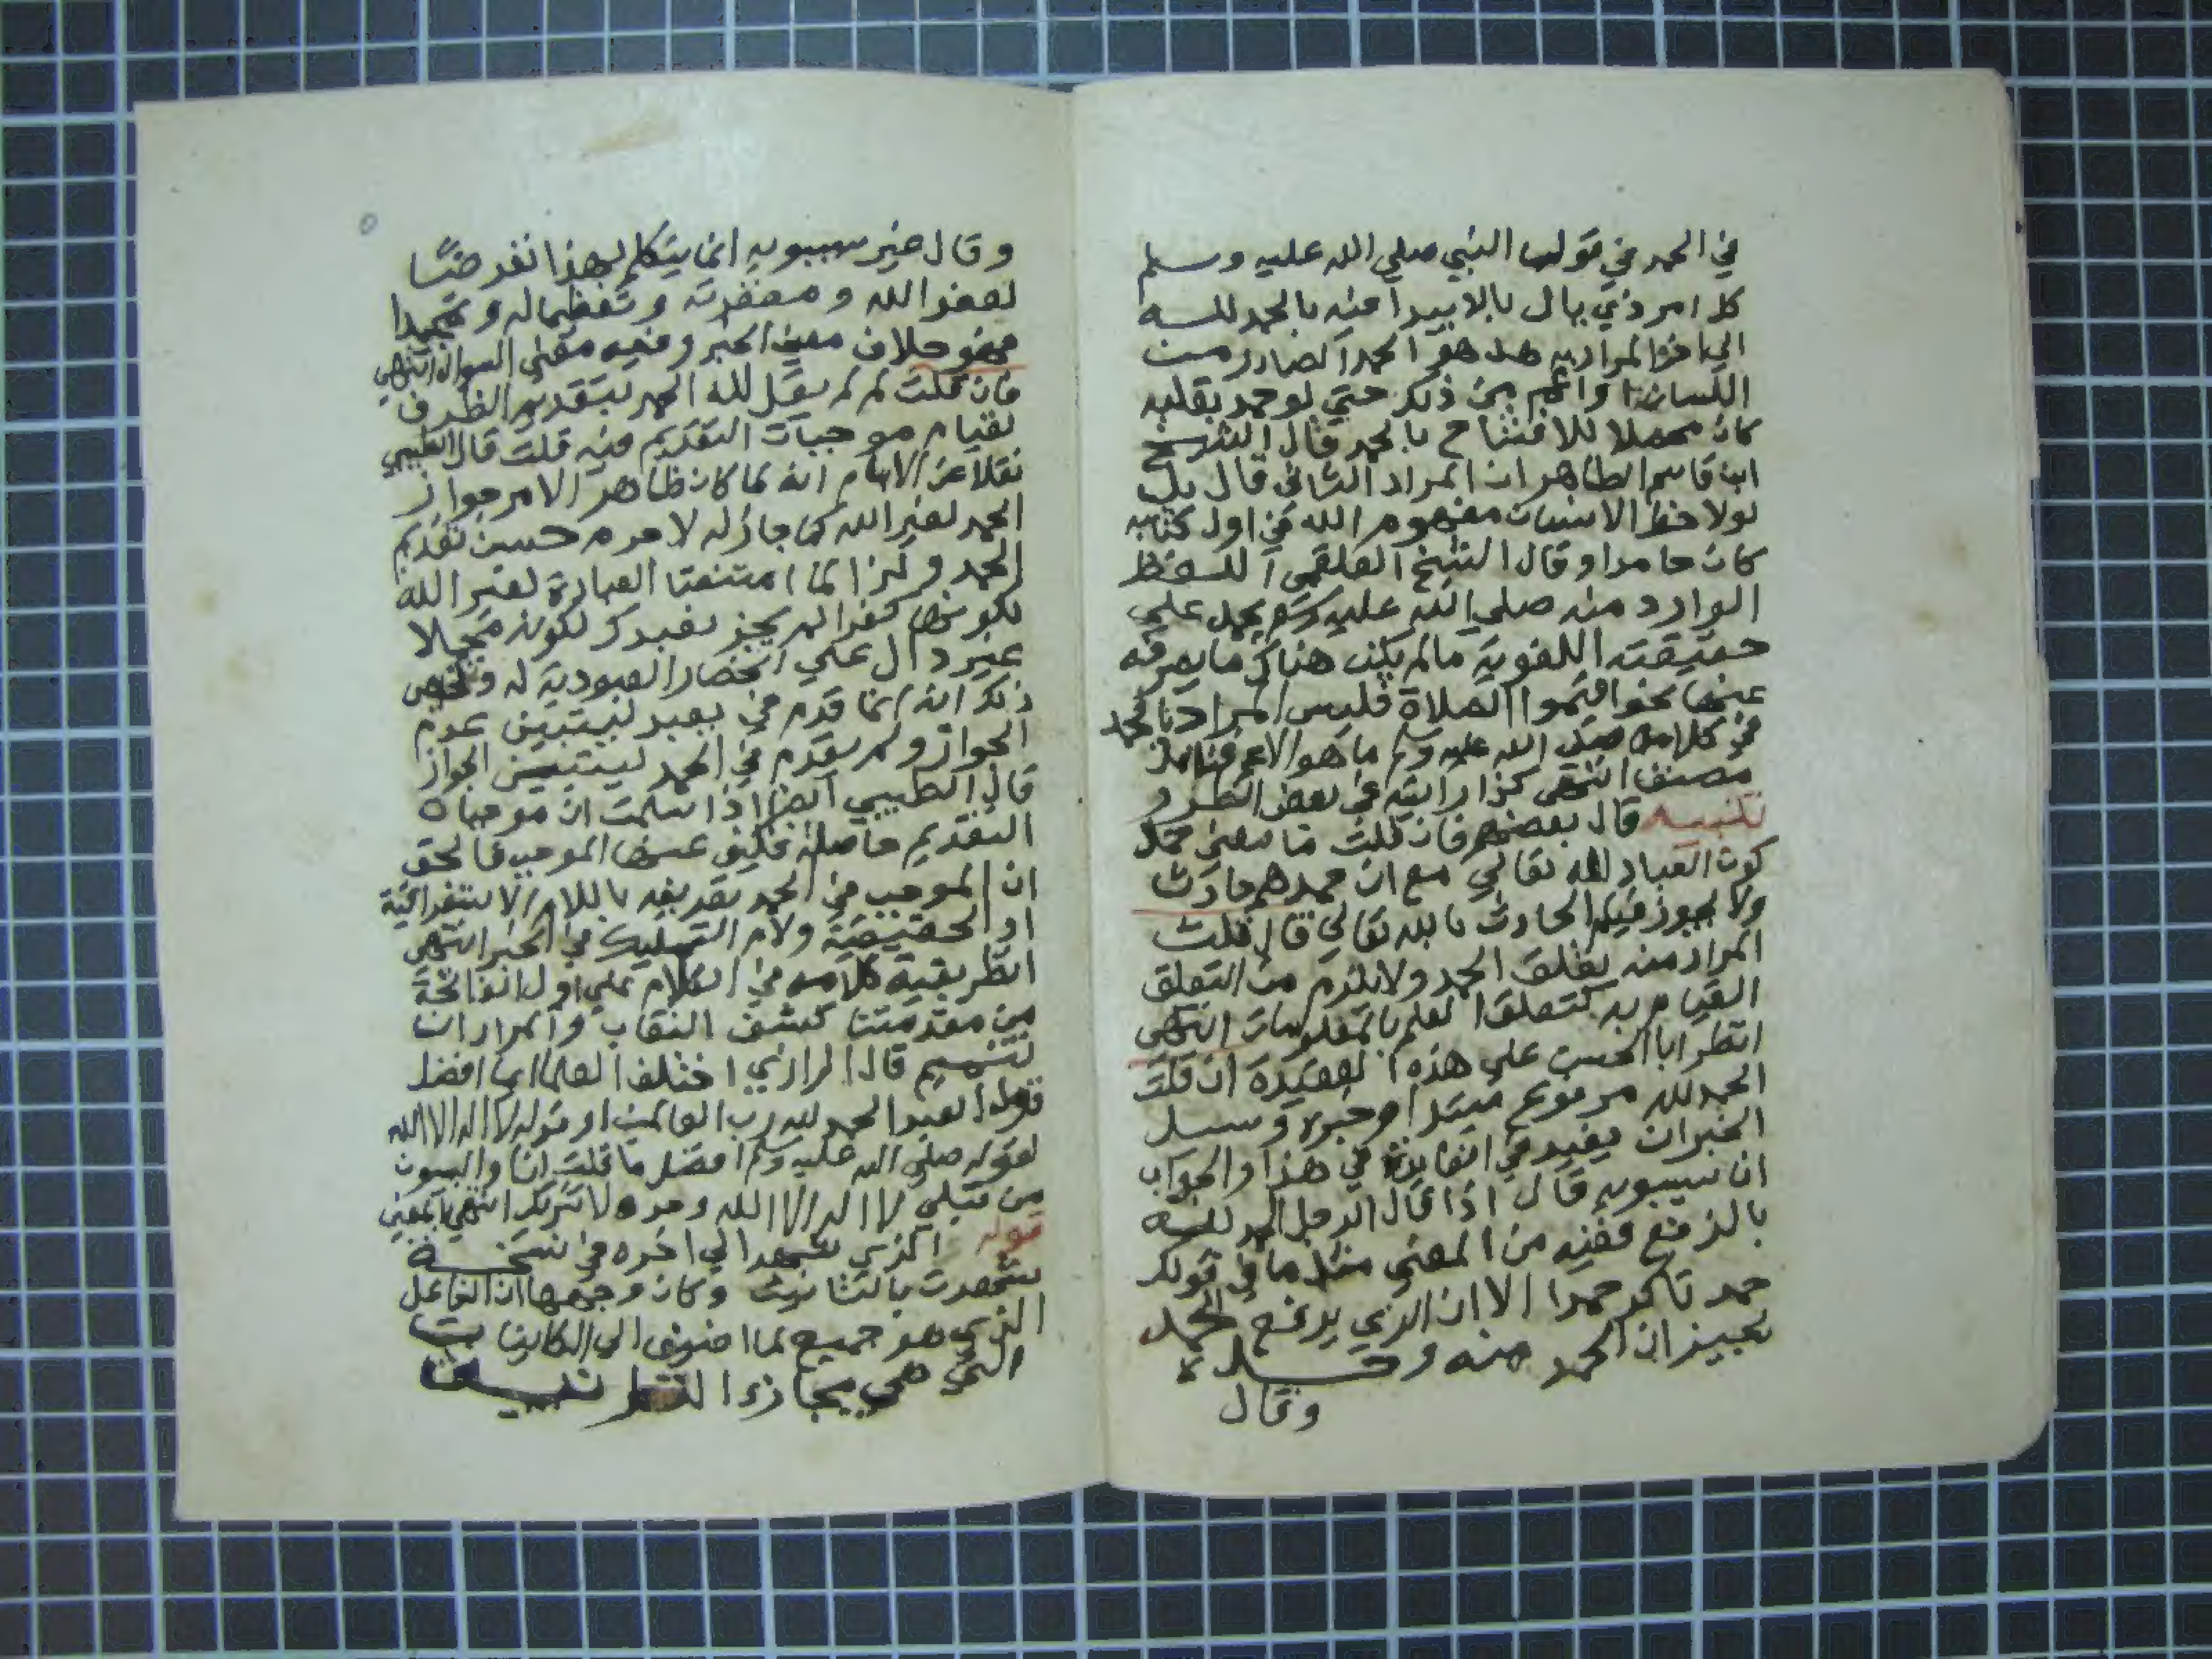 في الحمد في قول النبي صلي الله عليه وسلم
كل امر ذي بال بالا يبدا فيه بالحمد لله
الي اخره المراد به هل هو الحمد الصادر من
اللسان او اعم من ذلك حتي لو حمد بقلبه
كان محصلا للافتتاح بالحمد قال الشيخ
ابن قاسم الظاهر ان المراد الثاني قال بل
لولا حظ الانسان مفهوم الله في اول كتابه
كان حامدا وقال الشيخ العلقمي اللفظ
الوارد منه صلي الله عليه وسلم يحمل علي
حقيقته اللغوية مالم يكن هناك ما يصرفه
عنها نحو اقيموا الصلاة فليس المراد بالحمد
في كلامه صلي الله عليه وسلم ما هو الاعم فتامل
مصنف انتهي كذا رايته في بعض الطرر و
تنبيه قال بعضهم فان قلت ما معني حمد
كون العباد لله تعالي مع ان حمدهم حادث
ولا يجوز قيام الحادث بالله تعالي قال قلت
المراد منه تعلق الحمد ولا يلزم من التعلق
القيام به كتعلق العلم بالمعلومات انتهي
انظر ابا الحسن علي هذه العقيدة ان قلت
الحمد لله مرفوع مبتدا وخبره وسبيل
الخبر ان يفيد في الفايدة في هذا والجواب
ان سيبويه قال اذا قال الرجل الحمد لله
بالرفع ففيه من المعني مثل ما في قولك
حمد تاكد حمدا الا ان الذي يرفع الحمد
يخبر ان الحمد منه و
وقال
وقال غير سيبويه انما يتكلم بهذا تعرضا
لعفو الله و مغفرته وتعظيما له وتمجيدا
فهو خلاف معني الخبر وفيه معني السوال انتهي
فان قلت لم لم يقل لله الحمد بتقديم الظرف
لقيام موجبات التقديم فيه قلت قال الطيبي
نقلا عن الامام انه لما كان ظاهر الامر جواز
الحمد لغير الله كما جاز له لا جرم حسن تقديم
الحمد و كذا لما امتنعت العبادة لغير الله
لكونها كفرا لم يجز نعبدك لكونه محتملا
غير دال علي انحصار العبودية له
ذلك انه انما قدم في نعبد ليتبين عدم
الجواز ولم يقدم في الحمد ليتبين الجواز
قال الطيبي ايضا اذا سلمت ان موجبات
التقديم حاصلة فكيف عن الموجب فالحق
ان الموجب في الحمد تعريفه باللام الاستغراقية
او الحقيقية ولام التمليك في الخبر انتهي
انظر بقية كلامه في الكلام علي اول الفاتحة
من مقدمتنا كشف النقاب والمراد ان
تتميم قال الرازي اختلف العلما ايما افضل
قول العبد الحمد لله رب العالمين او قوله لا اله الا الله
لقوله صلي الله عليه وسلم افضل ما قلت انا والنبيون
من قبلي لا اله الا الله وحده لا شريك انتهي بمعني
قوله الذي شهد الي اخره في نسخة
شهدت بالتانيث وكان وجهها ان الفاعل
الذي هو جميع لما اضيف الي الكاينات
التي هي مجازا